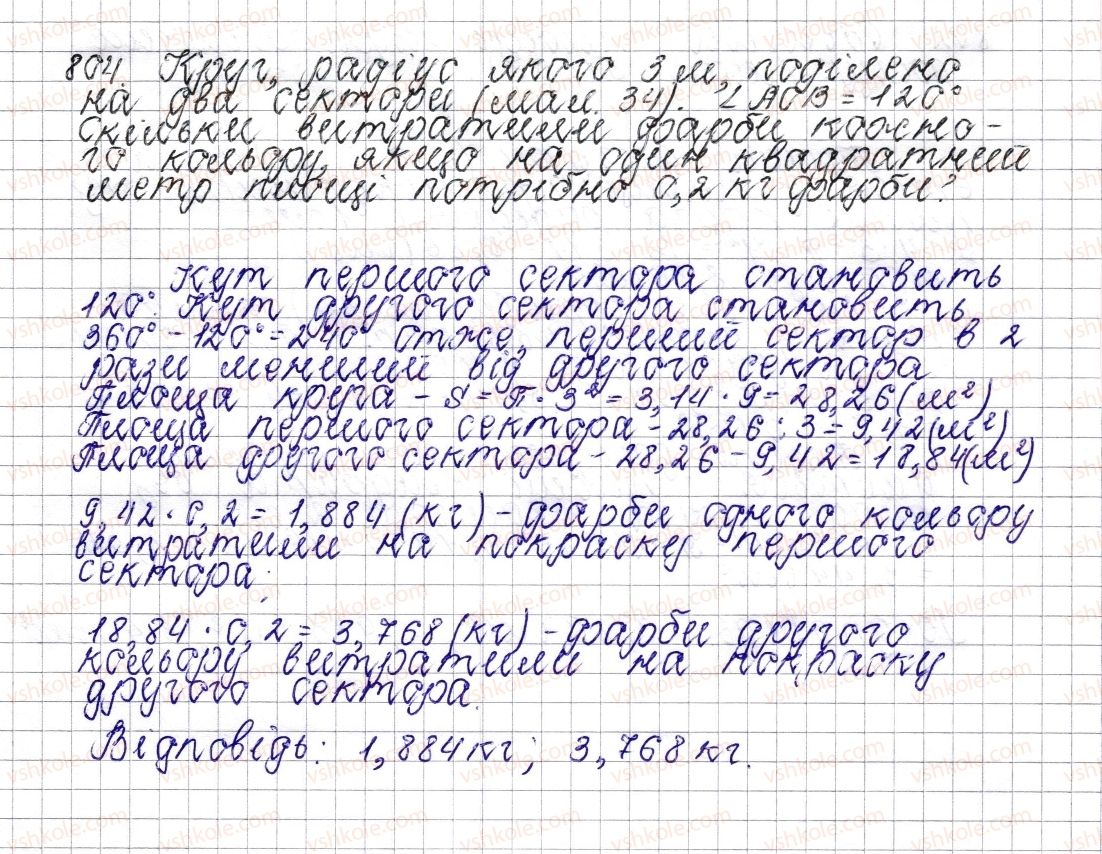 804. Круг, радіус якого 3 м, поділено
на два сектори (мал. 34). ∠ АОВ = 120°
Скільки витратили фарби кожно-
го кольору, якщо на один квадратний
метр площі потрібно 0,2 кг фарби?
Кут першого сектора становить
120°. Кут другого сектора становить
360° - 120° = 240° отже, перший сектор в 2
рази менший від другого сектора
Площа круга - S = π · 3² = 3,14 · 9 = 28,26 (м²)
Площа першого сектора - 28,26 : 3 = 9,42 (м²)
Площа другого сектора - 28,26 - 9,42 = 18,84 (м²)
9,42 · 0,2 = 1,884 (кг) - фарби одного кольору
витратили на покраску першого
сектора;
18,84 · 0,2 = 3,768 (кг) - фарби другого
кольору витратили на покраску
другого сектора.
Відповідь: 1,884 кг; 3,768 кг.